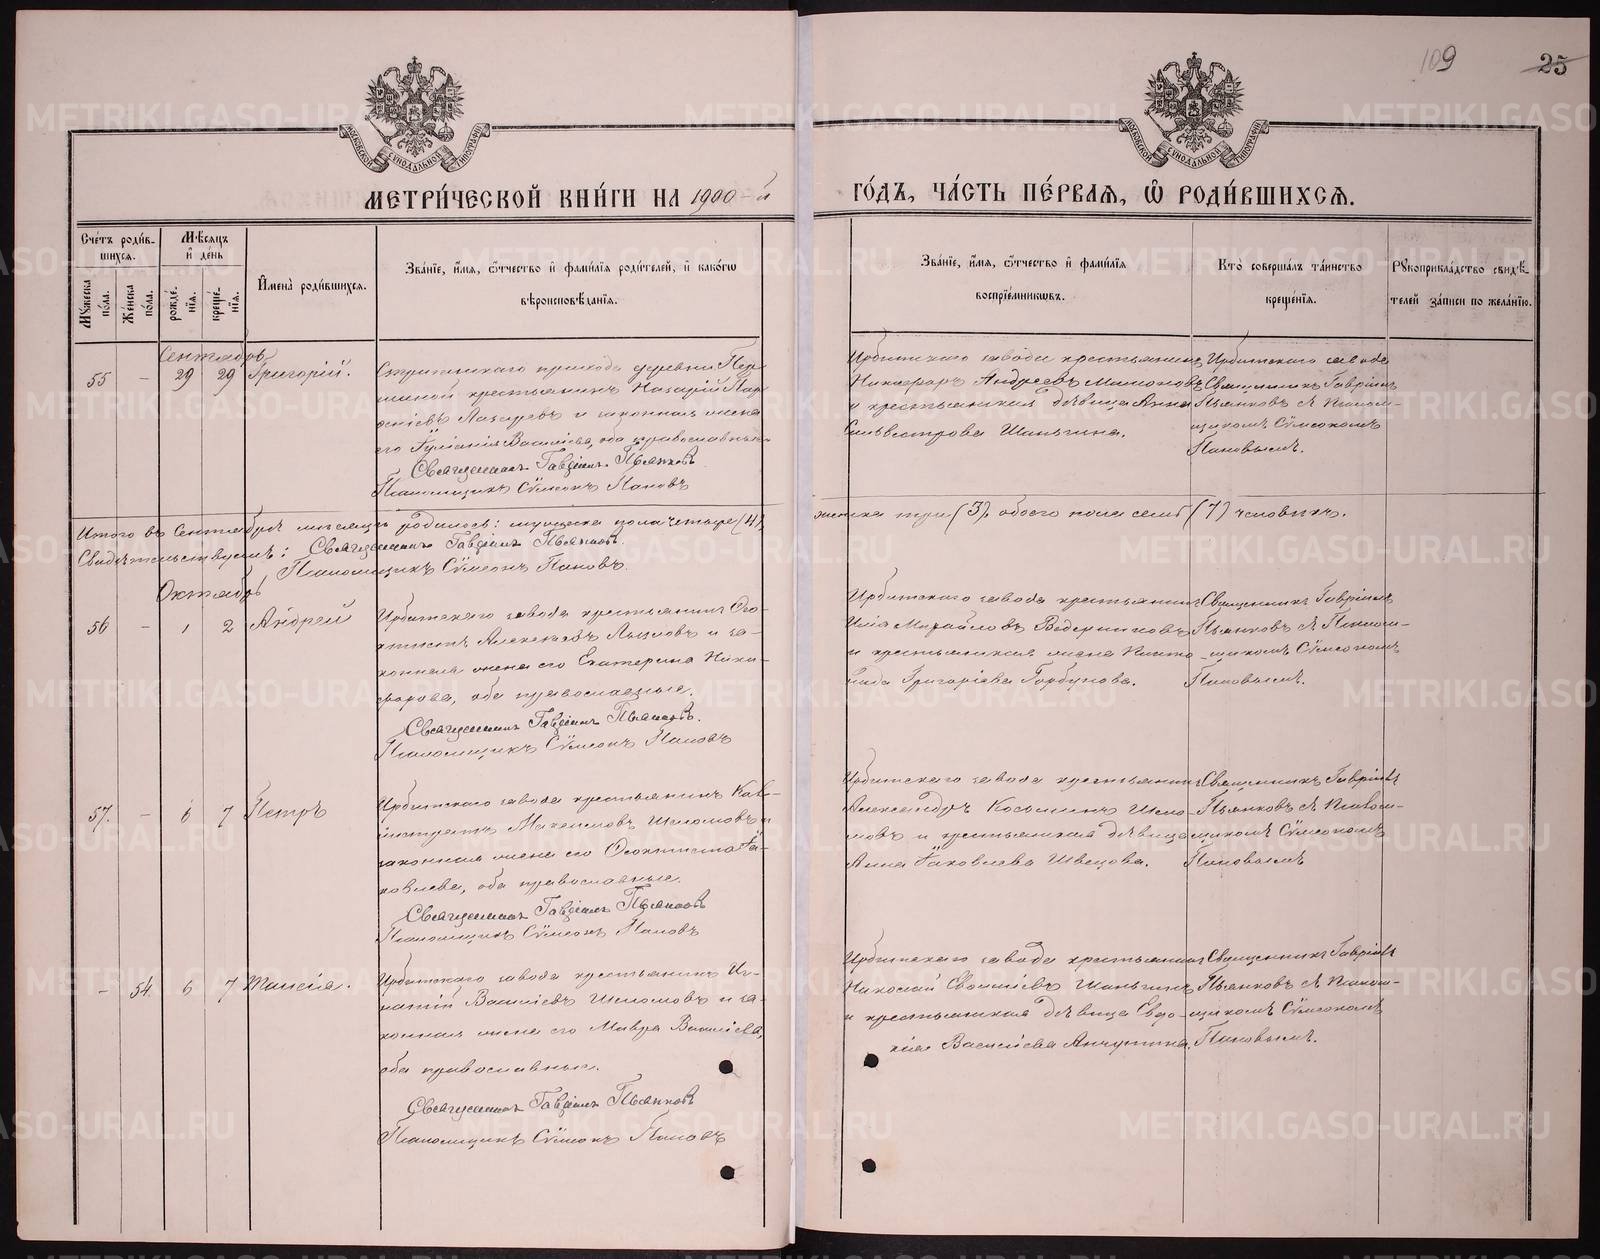 109
25
МОСКОВСКОЙ СѴНОДАЛЬНОЙ ТИПОГРАФІИ
МОСКОВСКОЙ СѴНОДАЛЬНОЙ ТИПОГРАФІИ
МЕТРИ́ЧЕСКОЙ КНИ́ГИ НА 1900-й ГО́ДЪ, ЧА́СТЬ ПЕ́РВАЯ, Ѡ РОДИ́ВШИХСЯ.
Сче́тъ роди́в-
шихся.
Мꙋ́жеска по́ла.
Же́нска по́ла.
Мѣ́сяцъ
и҆ де́нь
рожде́-
нїя.
креще́-
нїя.
И҆мена̀ роди́вшихся.
Зва́нїе, и҆́мя, ѻ҆́тчество и҆ фами́лїя роди́телей, и҆ како́гѡ
вѣроисповѣ́данїя.
Зва́нїе, и҆́мя, ѻ҆́тчество и҆ фами́лїя
воспрїе́мникѡвъ.
Кто̀ соверша́лъ та́инство
креще́нїя.
Рꙋкоприкла́дство свидѣ́-
телей за́писи по жела́нїю.
Сентябрь
55 - 29 29 Григорій.
прихода деревни
крестьянинъ Назарій Пар-
ѳеніевъ Лазаревъ и законная жена
его Іуліанія Васильева, оба православные
Священникъ Гавріилъ Пьянковъ
Псаломщикъ Сѵмеонъ Поповъ
Ирбитскаго завода крестьянинъ
Никифоръ Андреевъ
и крестьянская дѣвица Анна
Сильвестрова Шаньгина.
Ирбитскаго завода
Священникъ Гавріилъ
Пьянковъ съ Псалом-
щикомъ Сѵмеономъ
Поповымъ.
Итого въ Сентябрѣ мѣсяцѣ родилось: мужеска пола четыре (4),
женска три (3), обоего пола семь (7) человѣкъ.
Свидѣтельствуемъ: Священникъ Гавріилъ Пьянковъ.
Псаломщикъ Сѵмеонъ Поповъ.
Октябрь
56 - 1 2 Андрей
Ирбитскаго завода крестьянинъ Ѳео-
ктистъ Алексѣевъ и за-
конная жена его Екатерина Ники-
форова, оба православные.
Священникъ Гавріилъ Пьянковъ.
Псаломщикъ Сѵмеонъ Поповъ
Ирбитскаго завода крестьянинъ
Илія Михайловъ Ведерниковъ
и крестьянская жена
Григоріева Горбунова.
Священникъ Гавріилъ
Пьянковъ съ Псалом-
щикомъ Сѵмеономъ
Поповымъ.
57. - 6 7 Петръ
Ирбитскаго завода крестьянинъ Кал-
листратъ Максимовъ Шеломовъ и
законная жена его Ѳеоктиста Іа-
ковлева, оба православные.
Священникъ Гавріилъ Пьянковъ
Псаломщикъ Сѵмеонъ Поповъ
Ирбитскаго завода крестьянинъ
Александръ Косьминъ Шело-
мовъ и крестьянская дѣвица
Анна Іаковлева Швецова.
Священникъ Гавріилъ
Пьянковъ съ Псалом-
щикомъ Сѵмеономъ
Поповымъ
- 54. 6 7 Таисія.
Ирбитскаго завода крестьянинъ Иг-
натій Василіевъ Шеломовъ и за-
конная жена его Мавра Василіева,
оба православные.
Священникъ Гавріилъ Пьянковъ
Псаломщикъ Сѵмеонъ Поповъ
Ирбитскаго завода крестьянинъ
Николай Шаньгинъ
и крестьянская дѣвица Евдо-
кія Василіева Анчутина.
Священникъ Гавріилъ
Пьянковъ съ Псалом-
щикомъ Сѵмеономъ
Поповымъ.
METRIKI.GASO-URAL.RU